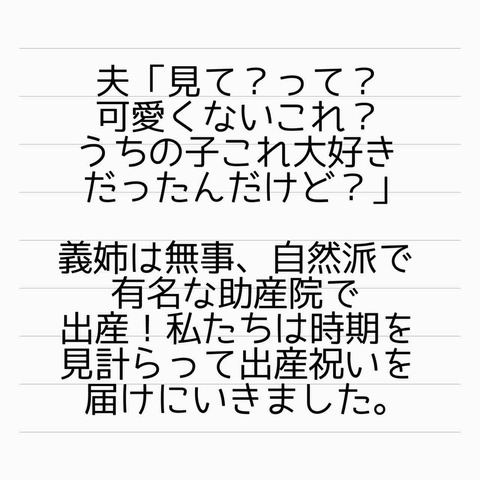 夫「見て？って？
可愛くないこれ？
うちの子これ大好き
だったんだけど？」
義姉は無事、自然派で
有名な助産院で
出産！私たちは時期を
見計らって出産祝いを
届けにいきました。